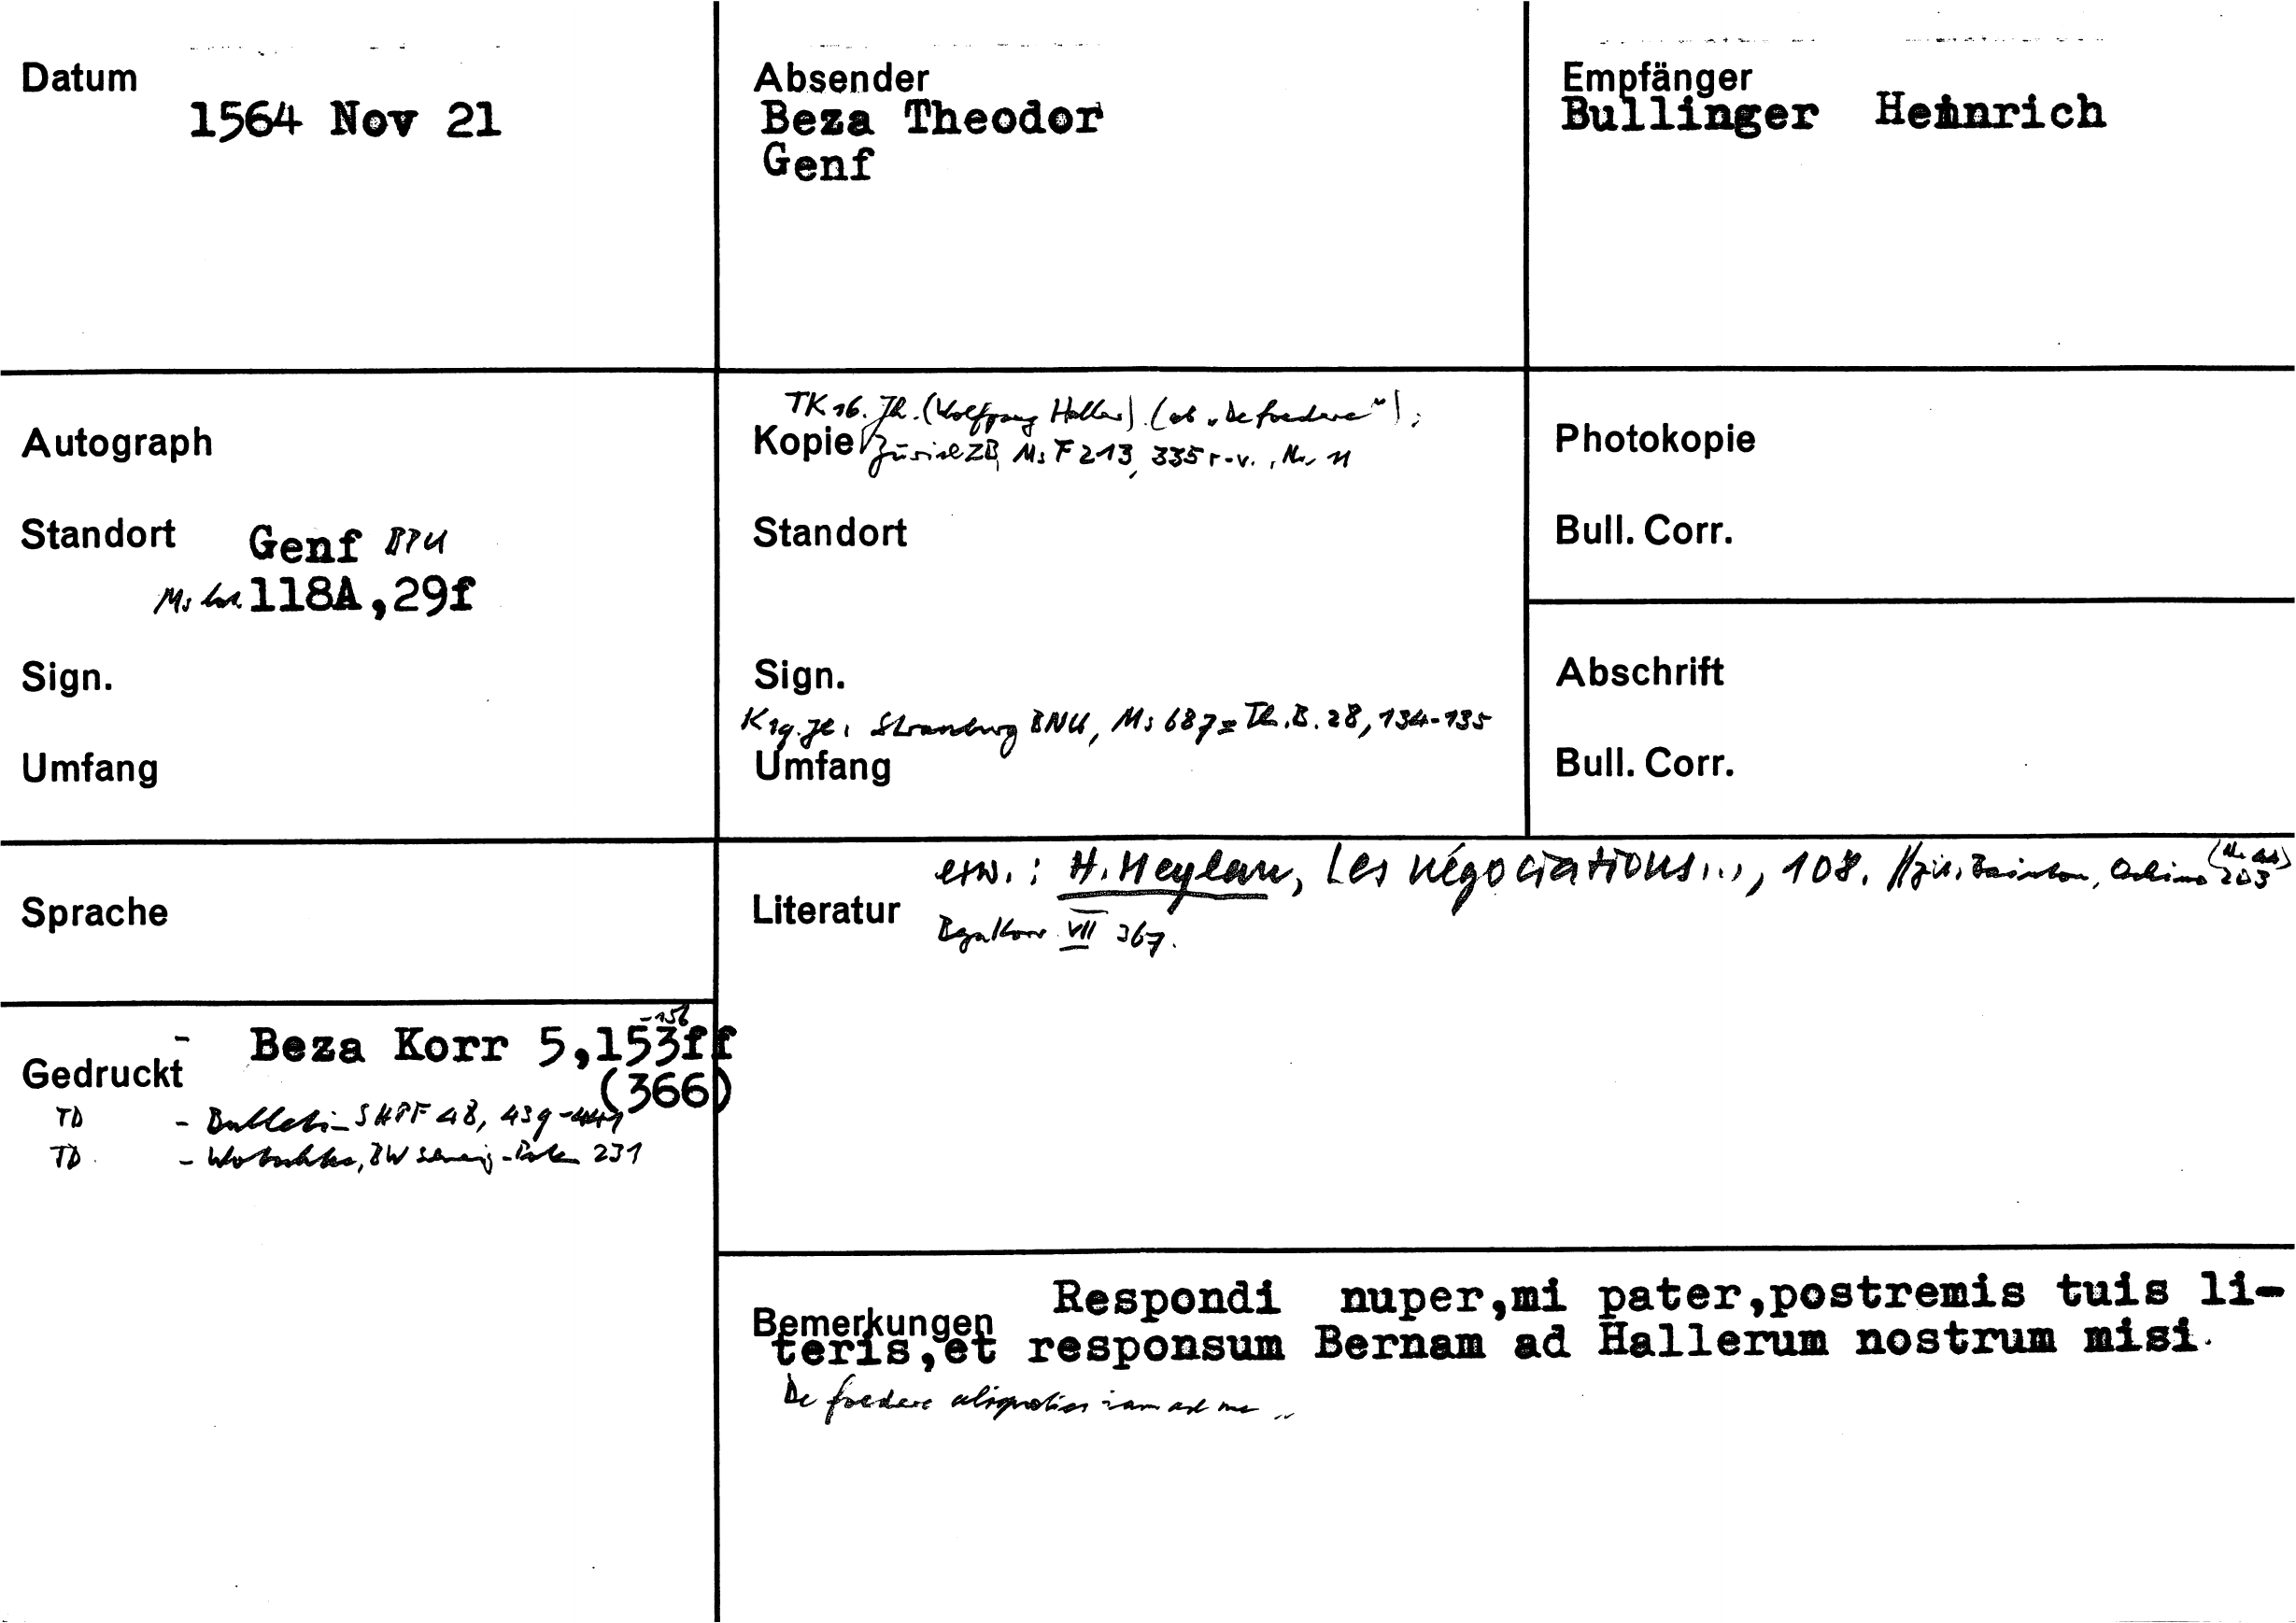 Datum
1564 Nov 21
Absender
Beza Theodor
Genf
Empfänger
Bullinger Heinrich
Autograph
Standort Genf BPU
Ms lat. 118A,29f
Sign.
Umfang
TK 16. Jh. (Wolfgang Haller) (ab "De foedere");
Kopie Zürich ZB, Ms F 213, 335 r-v., Nr. 11
Standort
Sign.
K 19. Jh. Strassburg BNU, Ms 687 = Th. B. 28, 134-135
Umfang
Photokopie
Bull. Corr.
Abschrift
Bull. Corr.
Sprache
erw.: H. Meylan, Les négociations..., 108. // zit. Bainton, Ochino 203
Literatur
BezaKorr VII 367.
- Beza Korr 5,153ff -156
Gedruckt
(366)
TD - Bulletin SHPF 48, 439-441
TD - Wotschke, BW schweiz-Polen 231
Respondi nuper,mi pater,postremis tuis li-
Bemerkungen
teris,et responsum Bernam ad Hallerum nostrum misi.
De foedere aliquoties iam ad me ..